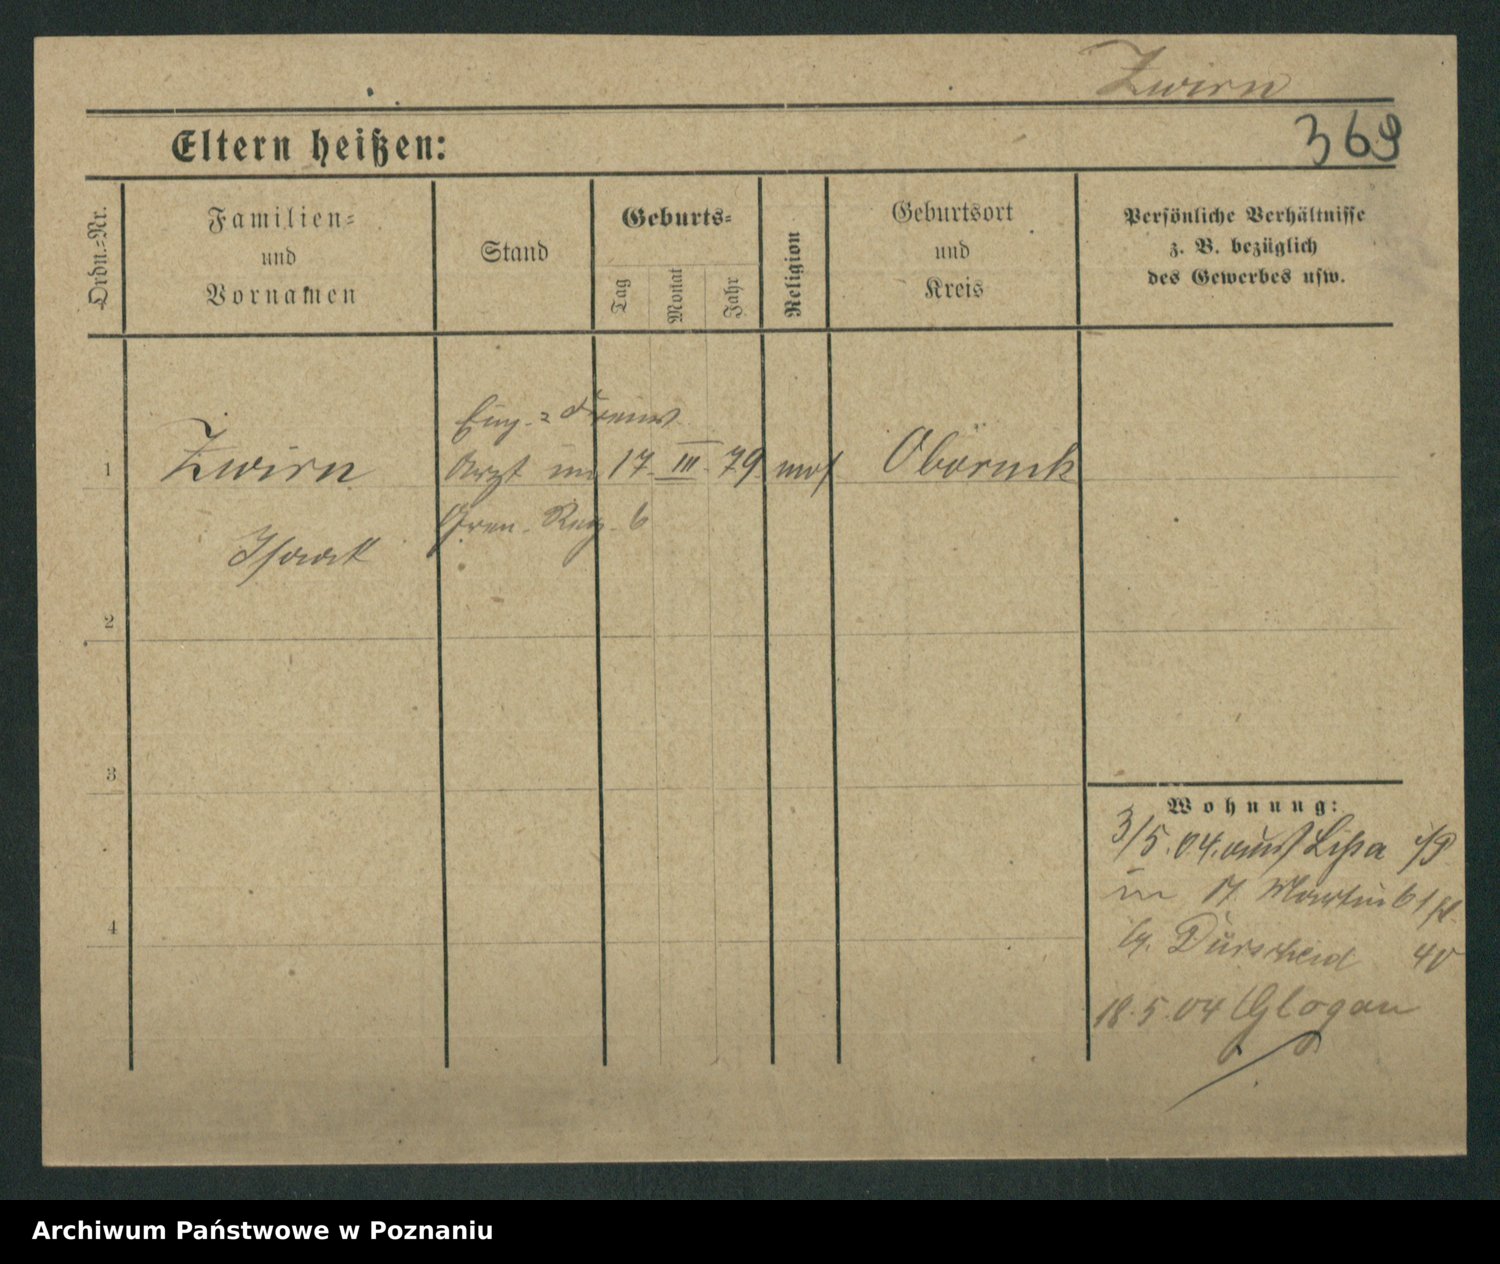 Zwirn
Eltern heißen:
369
Ordn.=Nr.
Familien=
und
Vornamen
Stand
Geburts=
Tag
Monat
Jahr
Religion
Geburtsort
und
Kreis
Persönliche Verhältnisse
z. B. bezüglich
des Gewerbes usw.
1
Zwirn
Arzt im
17 III 79
mos
Obornik
Gren. Reg. 6
Isaak
2
3
4
Wohnung:
3/5.04. aus Lissa
in 17 Martin 61
Dürscheid 40
18.5.04 Glogau
Archiwum Państwowe w Poznaniu